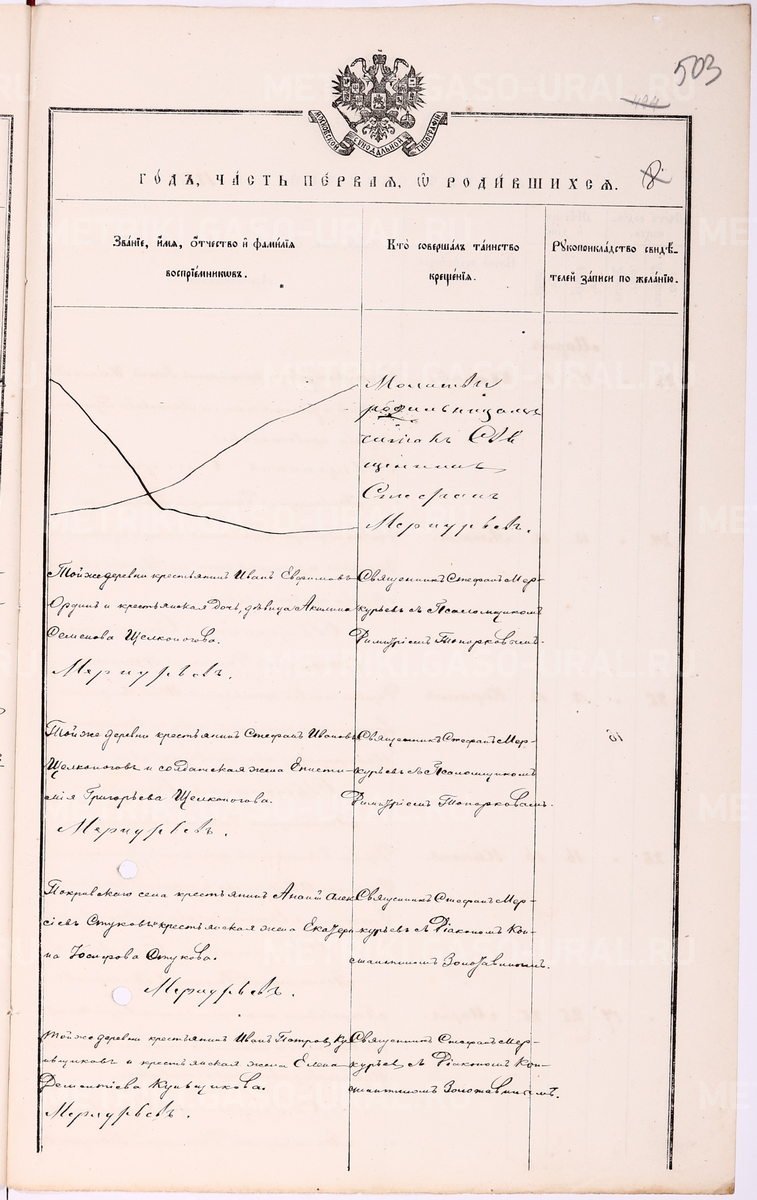 503
494
МОСКОВСКОЙ СѴНОДАЛЬНОЙ ТИПОГРАФІИ
ГО́ДЪ, ЧА́СТЬ ПЕ́РВАЯ, Ѽ РОДИ́ВШИХСЯ.
Зва́нїе, и́мя, о́тчество и҆ фами́лїя
воспрїе́мникωвъ.
Кто̀ соверша́лъ та́инство
креще́нїя.
Рꙋкоприкла́дство свидѣ́-
телей за́писи по жела́нїю.
Молитвы
родильницамъ
читалъ Свя
щенникъ
Стефанъ
Меркурьевъ.
Той же деревни крестьянинъ Иванъ Евфимовъ
Ординъ и крестьянская дочь, дѣвица Акилина
Семенова Щелконогова.
Меркурьевъ.
Священникъ Стефанъ Мер-
курьевъ съ Псаломщикомъ
Димитріемъ Топорковымъ.
Той же деревни крестьянинъ Стефанъ Ивановъ
Щелконоговъ и солдатская жена Еписти-
мія Григорьева Щелконогова.
Меркурьевъ.
Священникъ Стефанъ Мер-
курьевъ съ Псаломщикомъ
Димитріемъ Топорковымъ.
Покровскаго села крестьянинъ Ананій Алек
сѣевъ Стуковъ и крестьянская жена Екатери
на Іосифова Стукова.
Меркурьевъ.
Священникъ Стефанъ Мер-
курьевъ съ Діакономъ Кон-
стантиномъ Золотавинымъ.
Той же деревни крестьянинъ Иванъ Петровъ Ку
льщиковъ и крестьянская жена Елена
Дементіева Кульщикова.
Меркурьевъ.
Священникъ Стефанъ Мер-
курьевъ съ Діакономъ Кон-
стантиномъ Золотавинымъ.
METRIKI.GASO-URAL.RU